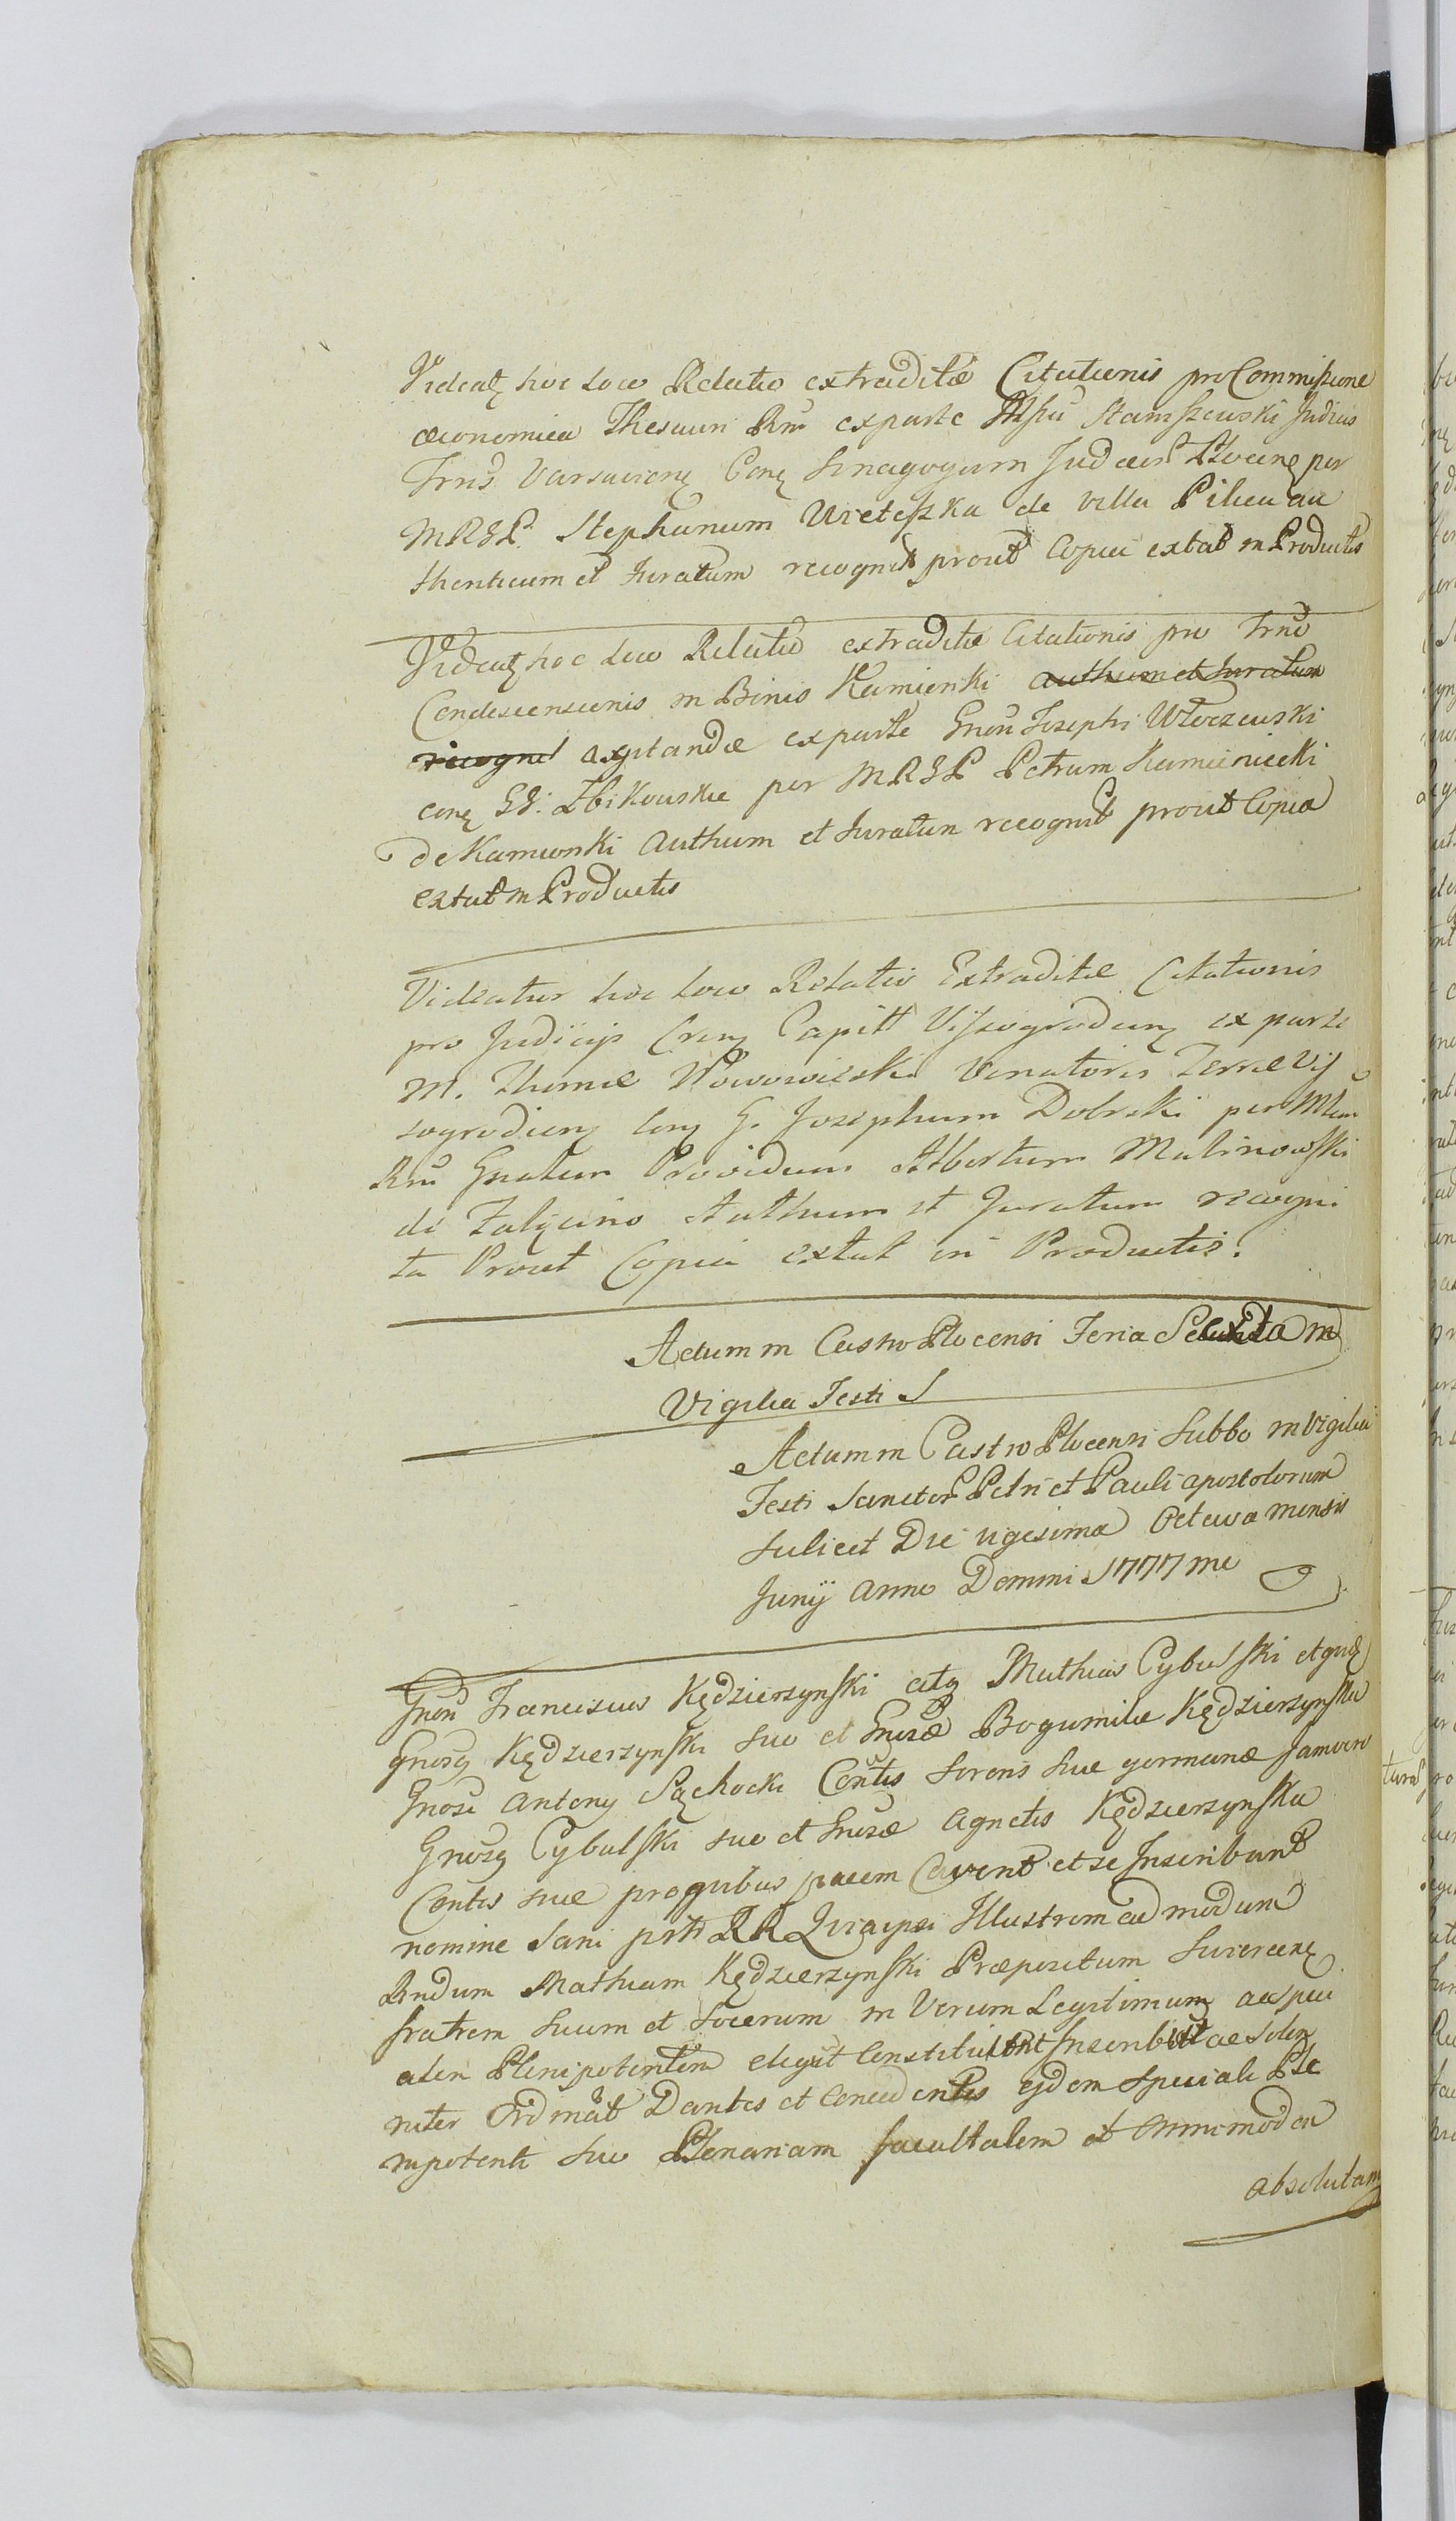 Videatꝫ hoc loco Relatio extraditæ Citationis pro Commissione
œconomica Thesauri Rni ex parte Mfici Staniszewski Judicis
Trris Varsaviensꝫ Conꝫ Sinagogam Judæor Plocensꝫ per
MRGP. Stephanum Wreteszka de villa Pilica au
thenticum et Juratum recognit prout Copia extat in Productis
Videatꝫ hoc loco Relatio extraditæ Citationis pro Trno
Condescensionis in Bonis Kamionki authum et Juratum
recognit agitandæ ex parte Gnosi Josephi Włoczewski
conꝫ GG: Zbikowskie per MRGP Petrum Kamieniecki
de Kamionki Authum et Juratum recognit prout Copia
extat in Productis
Videatur hoc loco Relatio Extraditæ Citationis
pro Judicijs Crenꝫ Capitt Vyssogrodienꝫ ex parte
M. Thomæ Nowowieski Venatoris Terræ Vy
sogrodienꝫ Conꝫ G. Josephum Dobrski per Mlem
Rni Gnalem Providum Albertum Malinowski
de Zalęcino Authum et Juratum recogni
ta Prout Copia extat in Productis.
Actum in Castro Plocensi Feria Sexta in
Vigilia Festi S
Actum in Castro Plocensi Sabbo in Vigilia
Festi Sanctor Petri et Pauli apostolorum
scilicet Die vigesima Octava mensis
Junij Anno Domini 1777mo
Gnosi Franciscus Kędzierzynski atqꝫ Mathias Cybulski et quidꝫ
Gnosꝫ Kędzierzynski suo et Gnosæ Bogumilæ Kędzierzynska
Gnosi Antony Sąchocki Contis Sororis suæ germanæ Jam vero
Gnosꝫ Cybulski suo et Gnosæ Agnetis Kędzierzynska
Contis suæ proquibus pacem Cavent et se Inscribunt
nomine Sani pnti RR Quaipsi Illustrem admodum
Rndum Mathiam Kędzierzynski Præpositum Sviercenꝫ
fratrem suum et Socerum in Verum Legitimum ac speci
alem Plenipotentem eligunt Constituunt Inscribunt ac solen
niter Ordinat Dantes et Concedentes ejdem Speciali Ple
nipotenti suo Plenariam facultatem et omnimodam
absolutam